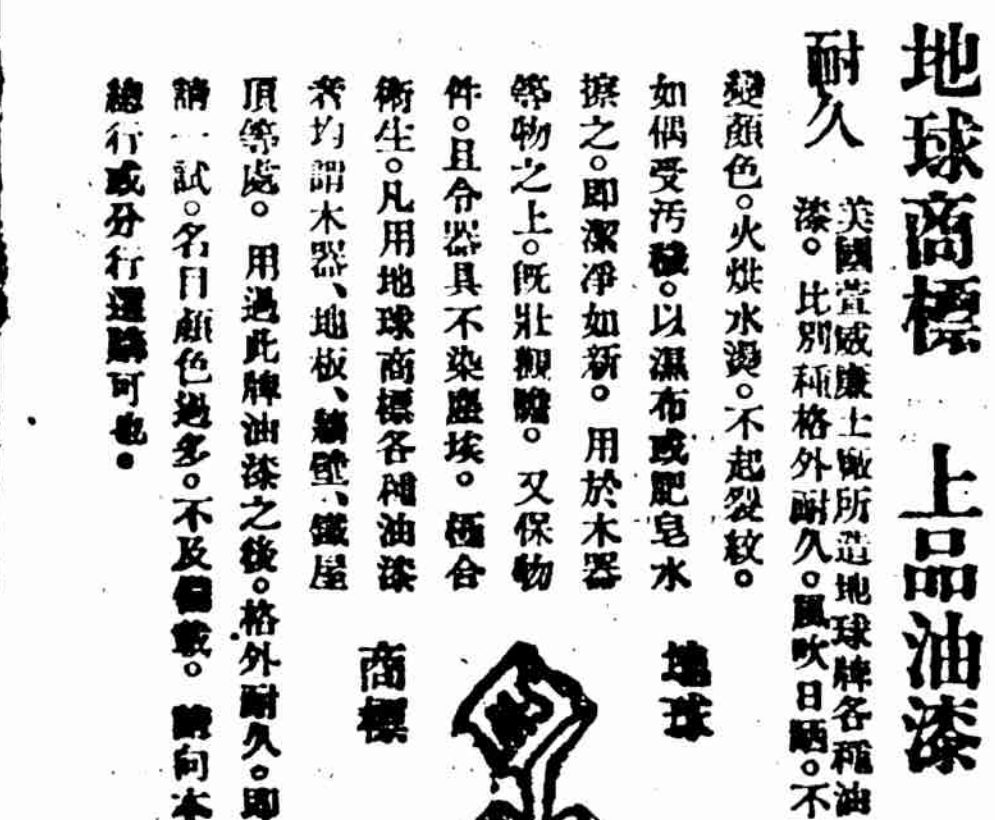 地球商標　上品油漆
耐久
美國萱威廉士廠所造地球牌各種油
漆。比別種格外耐久。風吹日晒。不
變顏色。火烘水燙。不起裂紋。
如偶受汚穢。以濕布或肥皂水
擦之。即潔凈如新。用於木器
等物之上。既壯觀瞻。又保物
件。且令器具不染塵埃。極合
衛生。凡用地球商標各種油漆
者均謂木器、地板、牆壁、鐵屋
頂等處。用過此牌油漆之後。格外耐久。即
請一試。名目顏色過多。不及備載。請向本
總行或分行選購可也。
地球
商標